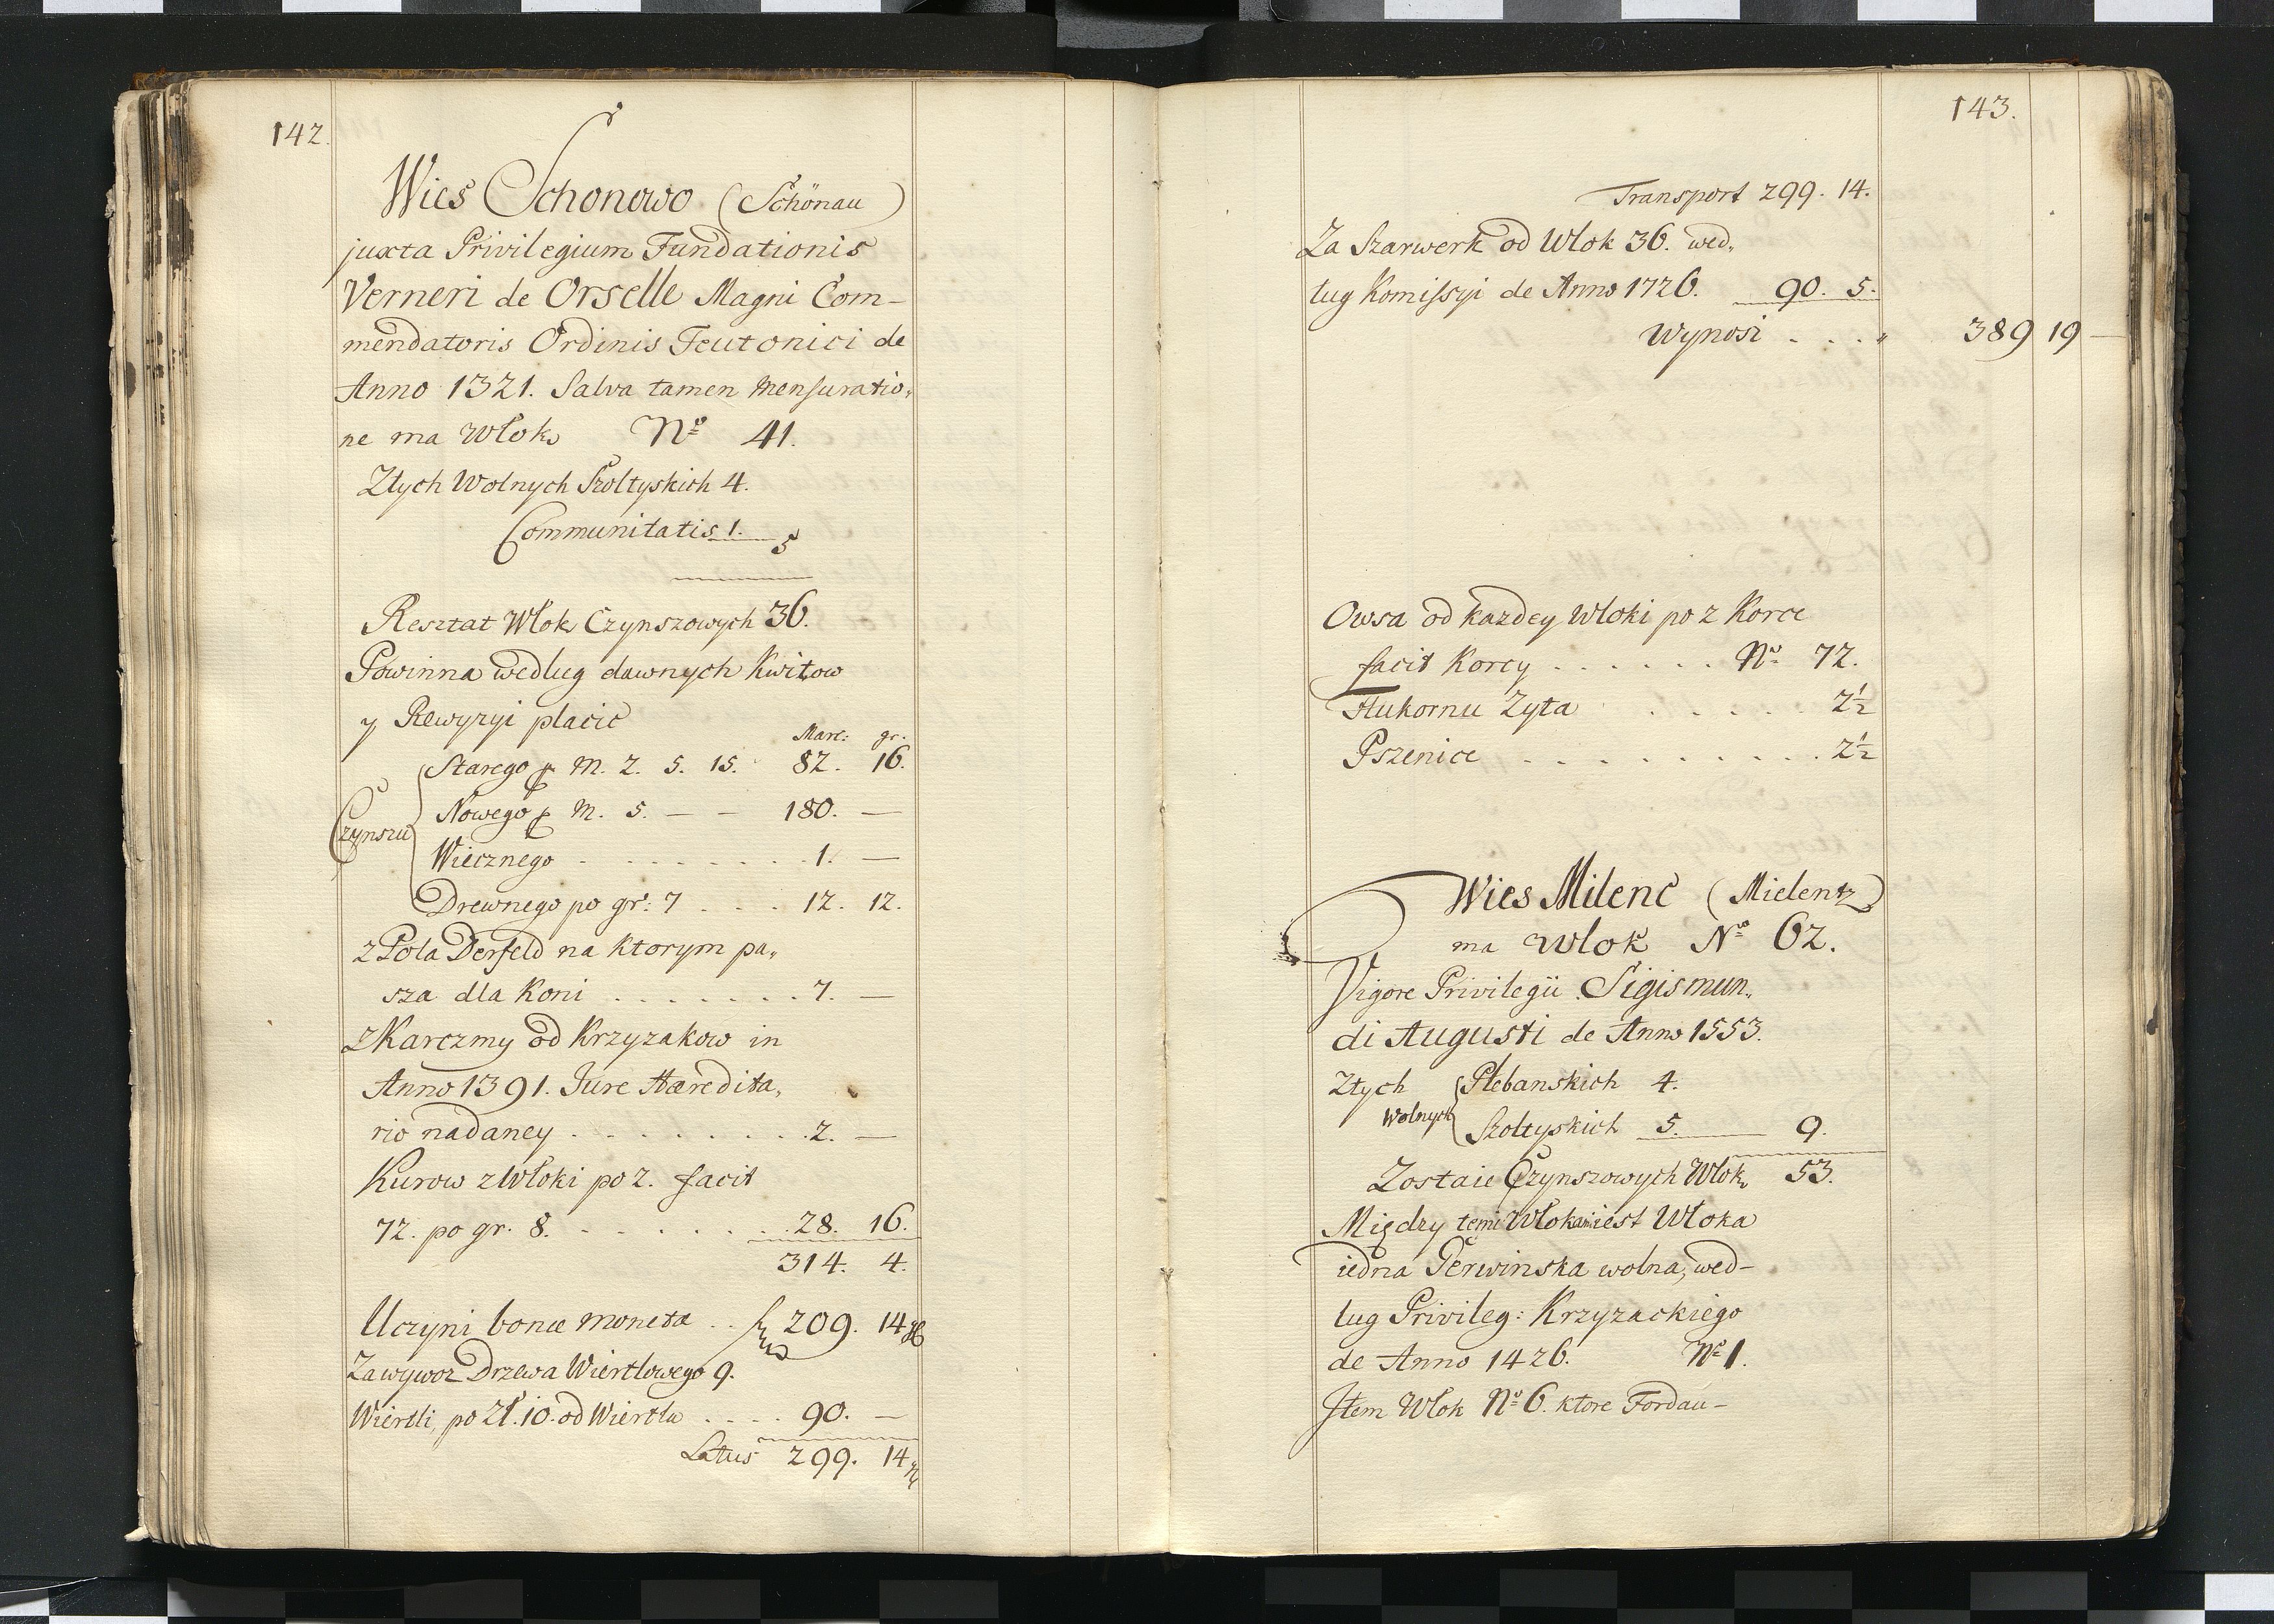 142.
Wies Schonowo (Schönau)
juxta Privilegium Fundationis
Verneri de Orselle Magni Com-
mendatoris Ordinis Teutonici de
Anno 1321. Salva tamen mensuratio„
ne ma Włok No 41.
Ztych Wolnych Szoltyskich 4.
Communitatis 1. 5
Resztat Włok Czynszowych 36.
Powinna według dawnych Kwitow
y Rewyzyi płacić
Marc: gr.
Czynszu
Starego p M. 2. 5. 15. 82. 16.
Nowego p M. 5. — — 180. —
Wiecznego . . . . . . . . 1. —
Drewnego po gr: 7 . . . 12. 12.
z Pola Derfeld na ktorym pa„
sza dla Koni . . . . . . . 7. —
z Karczmy od Krzyzakow in
Anno 1391. Jure Hæredita„
rio nadaney . . . . . . . . 2. —
Kurow z Włoki po 2. facit
72. po gr. 8. . . . . . . 28. 16.
314. 4.
Uczyni bonæ moneta . . 209. 14
Za wywoz Drzewa Wiertlowego 9.
Wiertli, po Zł. 10. od Wiertla . . . . 90. —
Latus 299. 14
143.
Transport 299. 14.
Za Szarwerk od Włok 36. wed„
ług Komissyi de Anno 1726. 90. 5.
Wynosi . . . „ 389 19 —
Owsa od kazdey Włoki po 2 Korce
facit Korcy . . . . . . No 72.
Flukornu Zyta . . . . . . 2½
Pszenice . . . . . . . . . . 2½
Wies Milenc (Mielentz)
ma Włok No 62.
Vigore Privilegii Sigismun„
di Augusti de Anno 1553.
Ztych Plebanskich 4.
Wolnych Szoltyskich 5. 9.
Zostaie Czynszowych Włok 53.
Między temi Włokami iest Włoka
iedna Perwinska wolna, wed-
ług Privileg: Krzyzackiego
de Anno 1426. No 1.
Item Włok No 6. ktore Fordau-